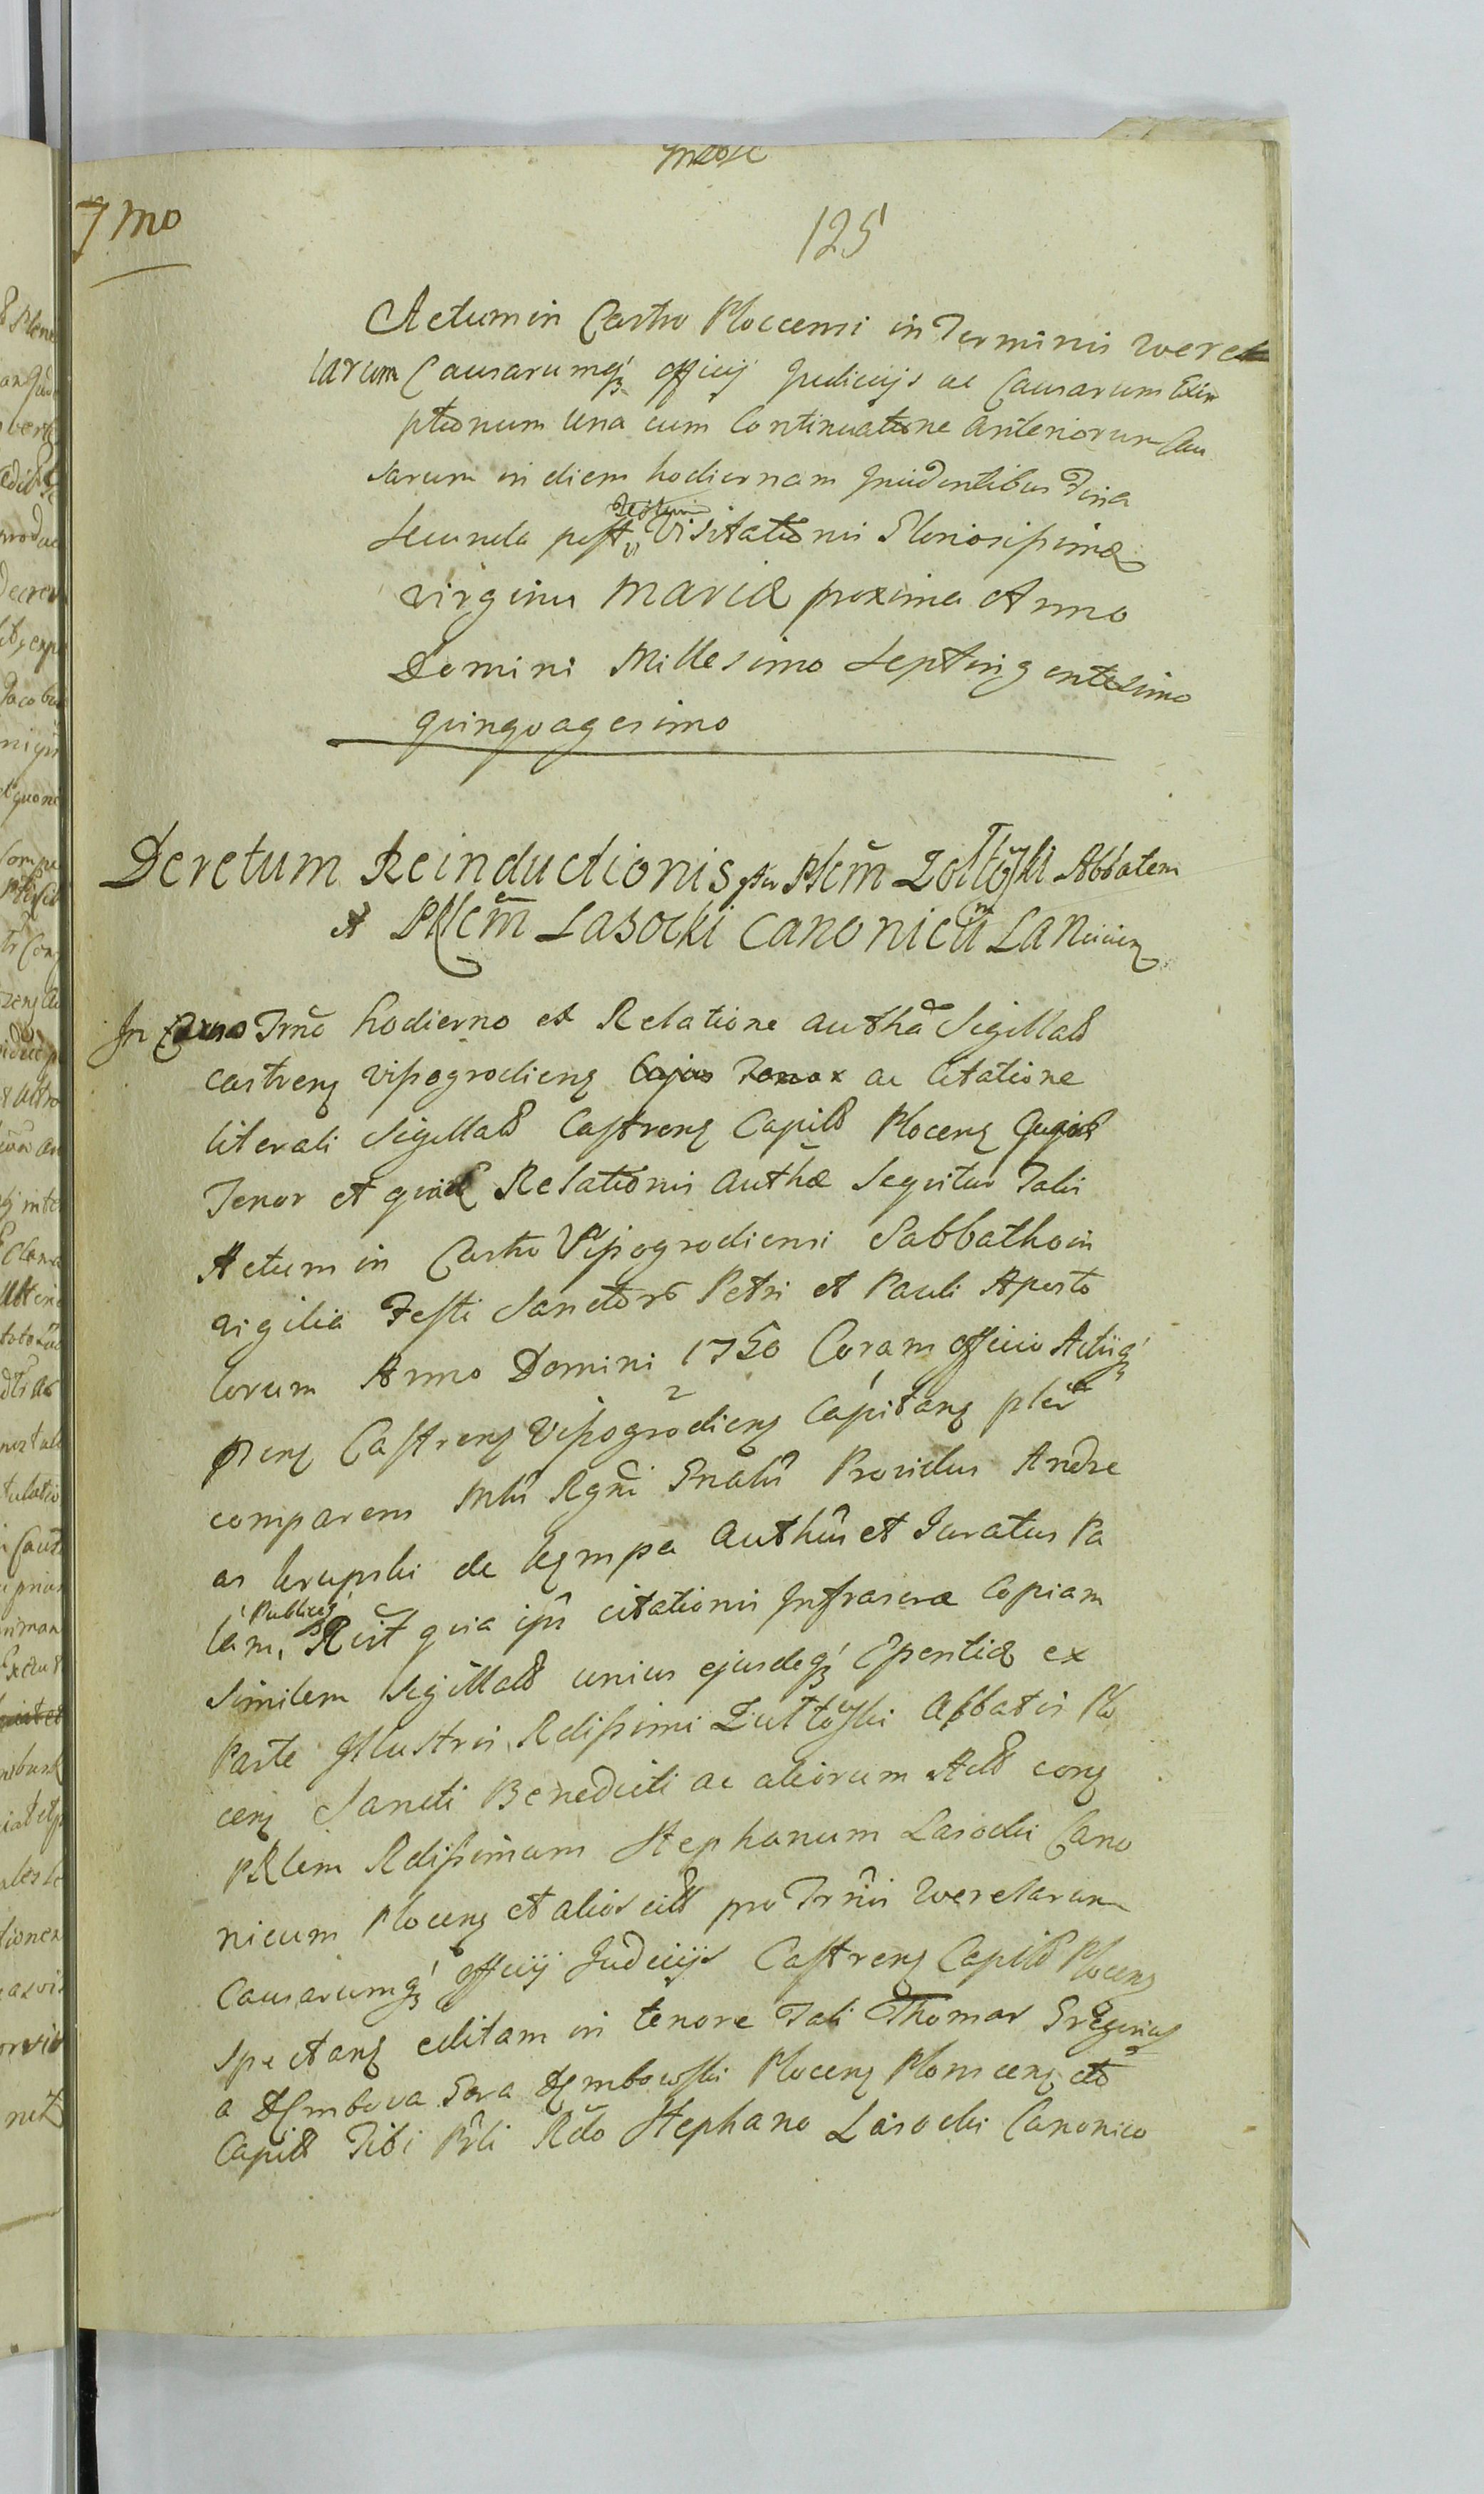 7mo
125
Actum in Castro Ploccensi in Terminis Quere
larum Causarumq; officij Judicijs ac Causarum Exe
ptionum una cum Continuatione anteriorum Cau
sarum in diem hodiernam Incidentibus Feria
Secunda post Festum Visitationis Gloriosissimæ
virginis Mariæ proxima Anno
Domini Millesimo Septingentesimo
quinquagesimo
Decretum Reinductionis Pblem Zołtoski Abbatem
et PRlem Lasocki Canonicum
In Trno hodierno et Relatione autha Sigillata
castren Vissogrodien ac Citatione
literali Sigillata Castren Capit Plocen
Tenor et Relationis authæ Sequitur Talis
Actum in Castro Vissogrodiensi Sabbatho in
vigilia Festi Sanctor Petri et Pauli Aposto
lorum Anno Domini 1750 Coram officio Actisq;
pren Castren Vissogrodien Capitan pler
comparens Mtri Rgni Gnalis Providus Andre
as Krupski de Kempa authus et Juratus Pa
lam, Publiceq; Rcit quia ipse citationis Infrascræ Copiam
Similem Sigillata unius ejusdeq; Cpsentiæ ex
Parte Illustris Rdissimi Zułtoski Abbatis Plo
cen Sancti Benedicti ac aliorum Act con
PRlem Rdissimum Stephanum Lasocki Cano
nicum Plocen et alios cit pro Trnis Querelarum
Causarumq; officij Judicijs Castren Capit Plocen
Spectan editam in tenore Tali Thomas Gregorius
a Dembowa Gora Dembowski Plocen Plonscen etc
Capit Tibi Plri Rdo Stephano Lasocki Canonico